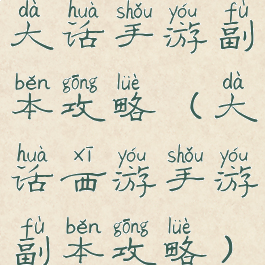 dà huà shǒu yóu fù
大话手游副
běn gōng lüè dà
本攻略（大
huà xī yóu shǒu yóu
话西游手游
fù běn gōng lüè
副本攻略）